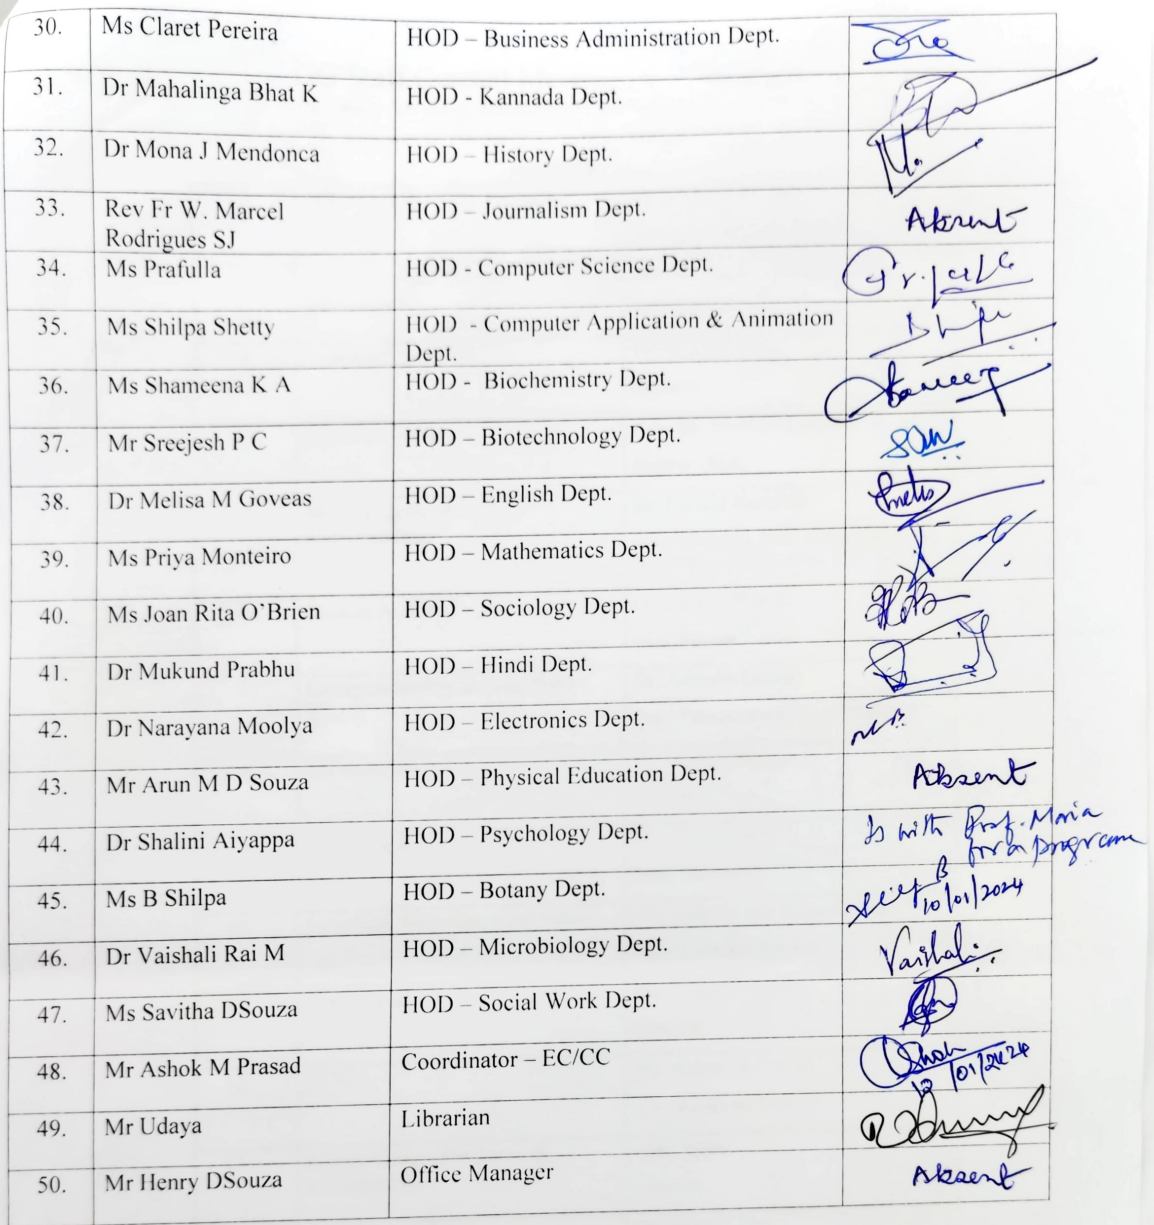 30. Ms Claret Pereira HOD – Business Administration Dept.
31. Dr Mahalinga Bhat K HOD - Kannada Dept.
32. Dr Mona J Mendonca HOD – History Dept.
33. Rev Fr W. Marcel HOD – Journalism Dept. Absent
Rodrigues SJ
34. Ms Prafulla HOD - Computer Science Dept.
35. Ms Shilpa Shetty HOD - Computer Application & Animation
Dept.
36. Ms Shameena K A HOD - Biochemistry Dept.
37. Mr Sreejesh P C HOD – Biotechnology Dept.
38. Dr Melisa M Goveas HOD – English Dept.
39. Ms Priya Monteiro HOD – Mathematics Dept.
40. Ms Joan Rita O'Brien HOD – Sociology Dept.
41. Dr Mukund Prabhu HOD – Hindi Dept.
42. Dr Narayana Moolya HOD – Electronics Dept.
43. Mr Arun M D Souza HOD – Physical Education Dept. Absent
44. Dr Shalini Aiyappa HOD – Psychology Dept. Is with Prof. Maria
for a program
45. Ms B Shilpa HOD – Botany Dept. 10/01/2024
46. Dr Vaishali Rai M HOD – Microbiology Dept. Vaishali
47. Ms Savitha DSouza HOD – Social Work Dept.
48. Mr Ashok M Prasad Coordinator – EC/CC
49. Mr Udaya Librarian
50. Mr Henry DSouza Office Manager Absent